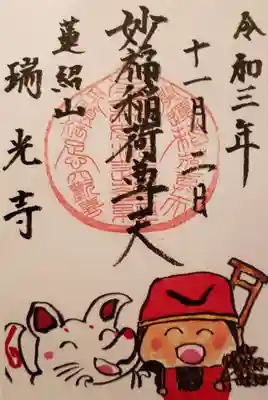 令和三年
十一月二日
妙福稲荷尊天
蓮紹山
瑞光寺